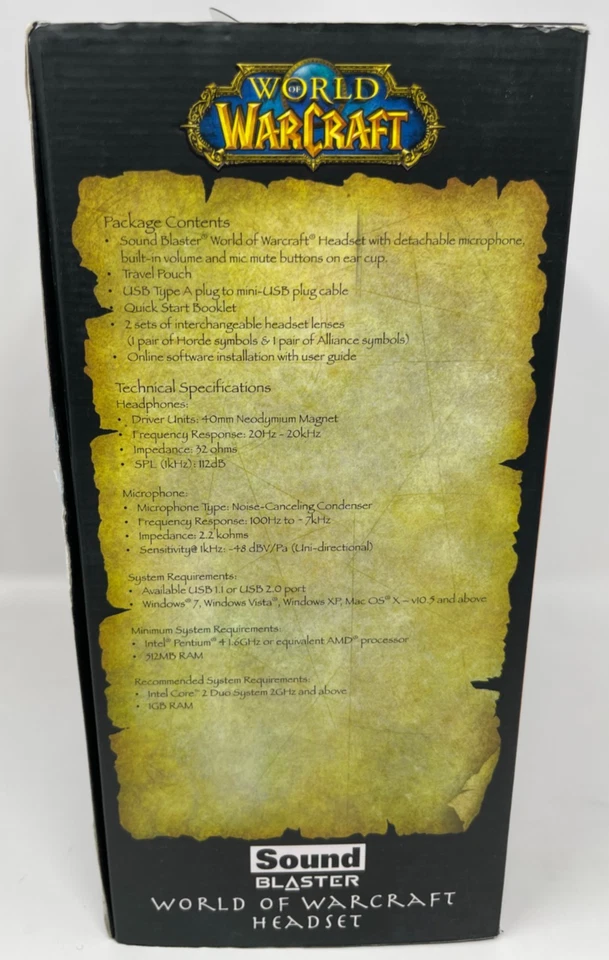 WORLD
OF
WARCRAFT
Package Contents
• Sound Blaster® World of Warcraft® Headset with detachable microphone,
built-in volume and mic mute buttons on ear cup.
• Travel Pouch
• USB Type A plug to mini-USB plug cable
• Quick Start Booklet
• 2 sets of interchangeable headset lenses
(1 pair of Horde symbols & 1 pair of Alliance symbols)
• Online software installation with user guide
Technical Specifications
Headphones:
• Driver Units: 40mm Neodymium Magnet
• Frequency Response: 20Hz - 20kHz
• Impedance: 32 ohms
• SPL (1kHz): 112dB
Microphone:
• Microphone Type: Noise-Canceling Condenser
• Frequency Response: 100Hz to ~ 7kHz
• Impedance: 2.2 kohms
• Sensitivity@ 1kHz: -48 dBV/Pa (Uni-directional)
System Requirements:
• Available USB 1.1 or USB 2.0 port
• Windows® 7, Windows Vista®, Windows XP, Mac OS® X – v10.5 and above
Minimum System Requirements:
• Intel® Pentium® 4 1.6GHz or equivalent AMD® processor
• 512MB RAM
Recommended System Requirements:
• Intel Core™ 2 Duo System 2GHz and above
• 1GB RAM
Sound
BLASTER
WORLD OF WARCRAFT
HEADSET